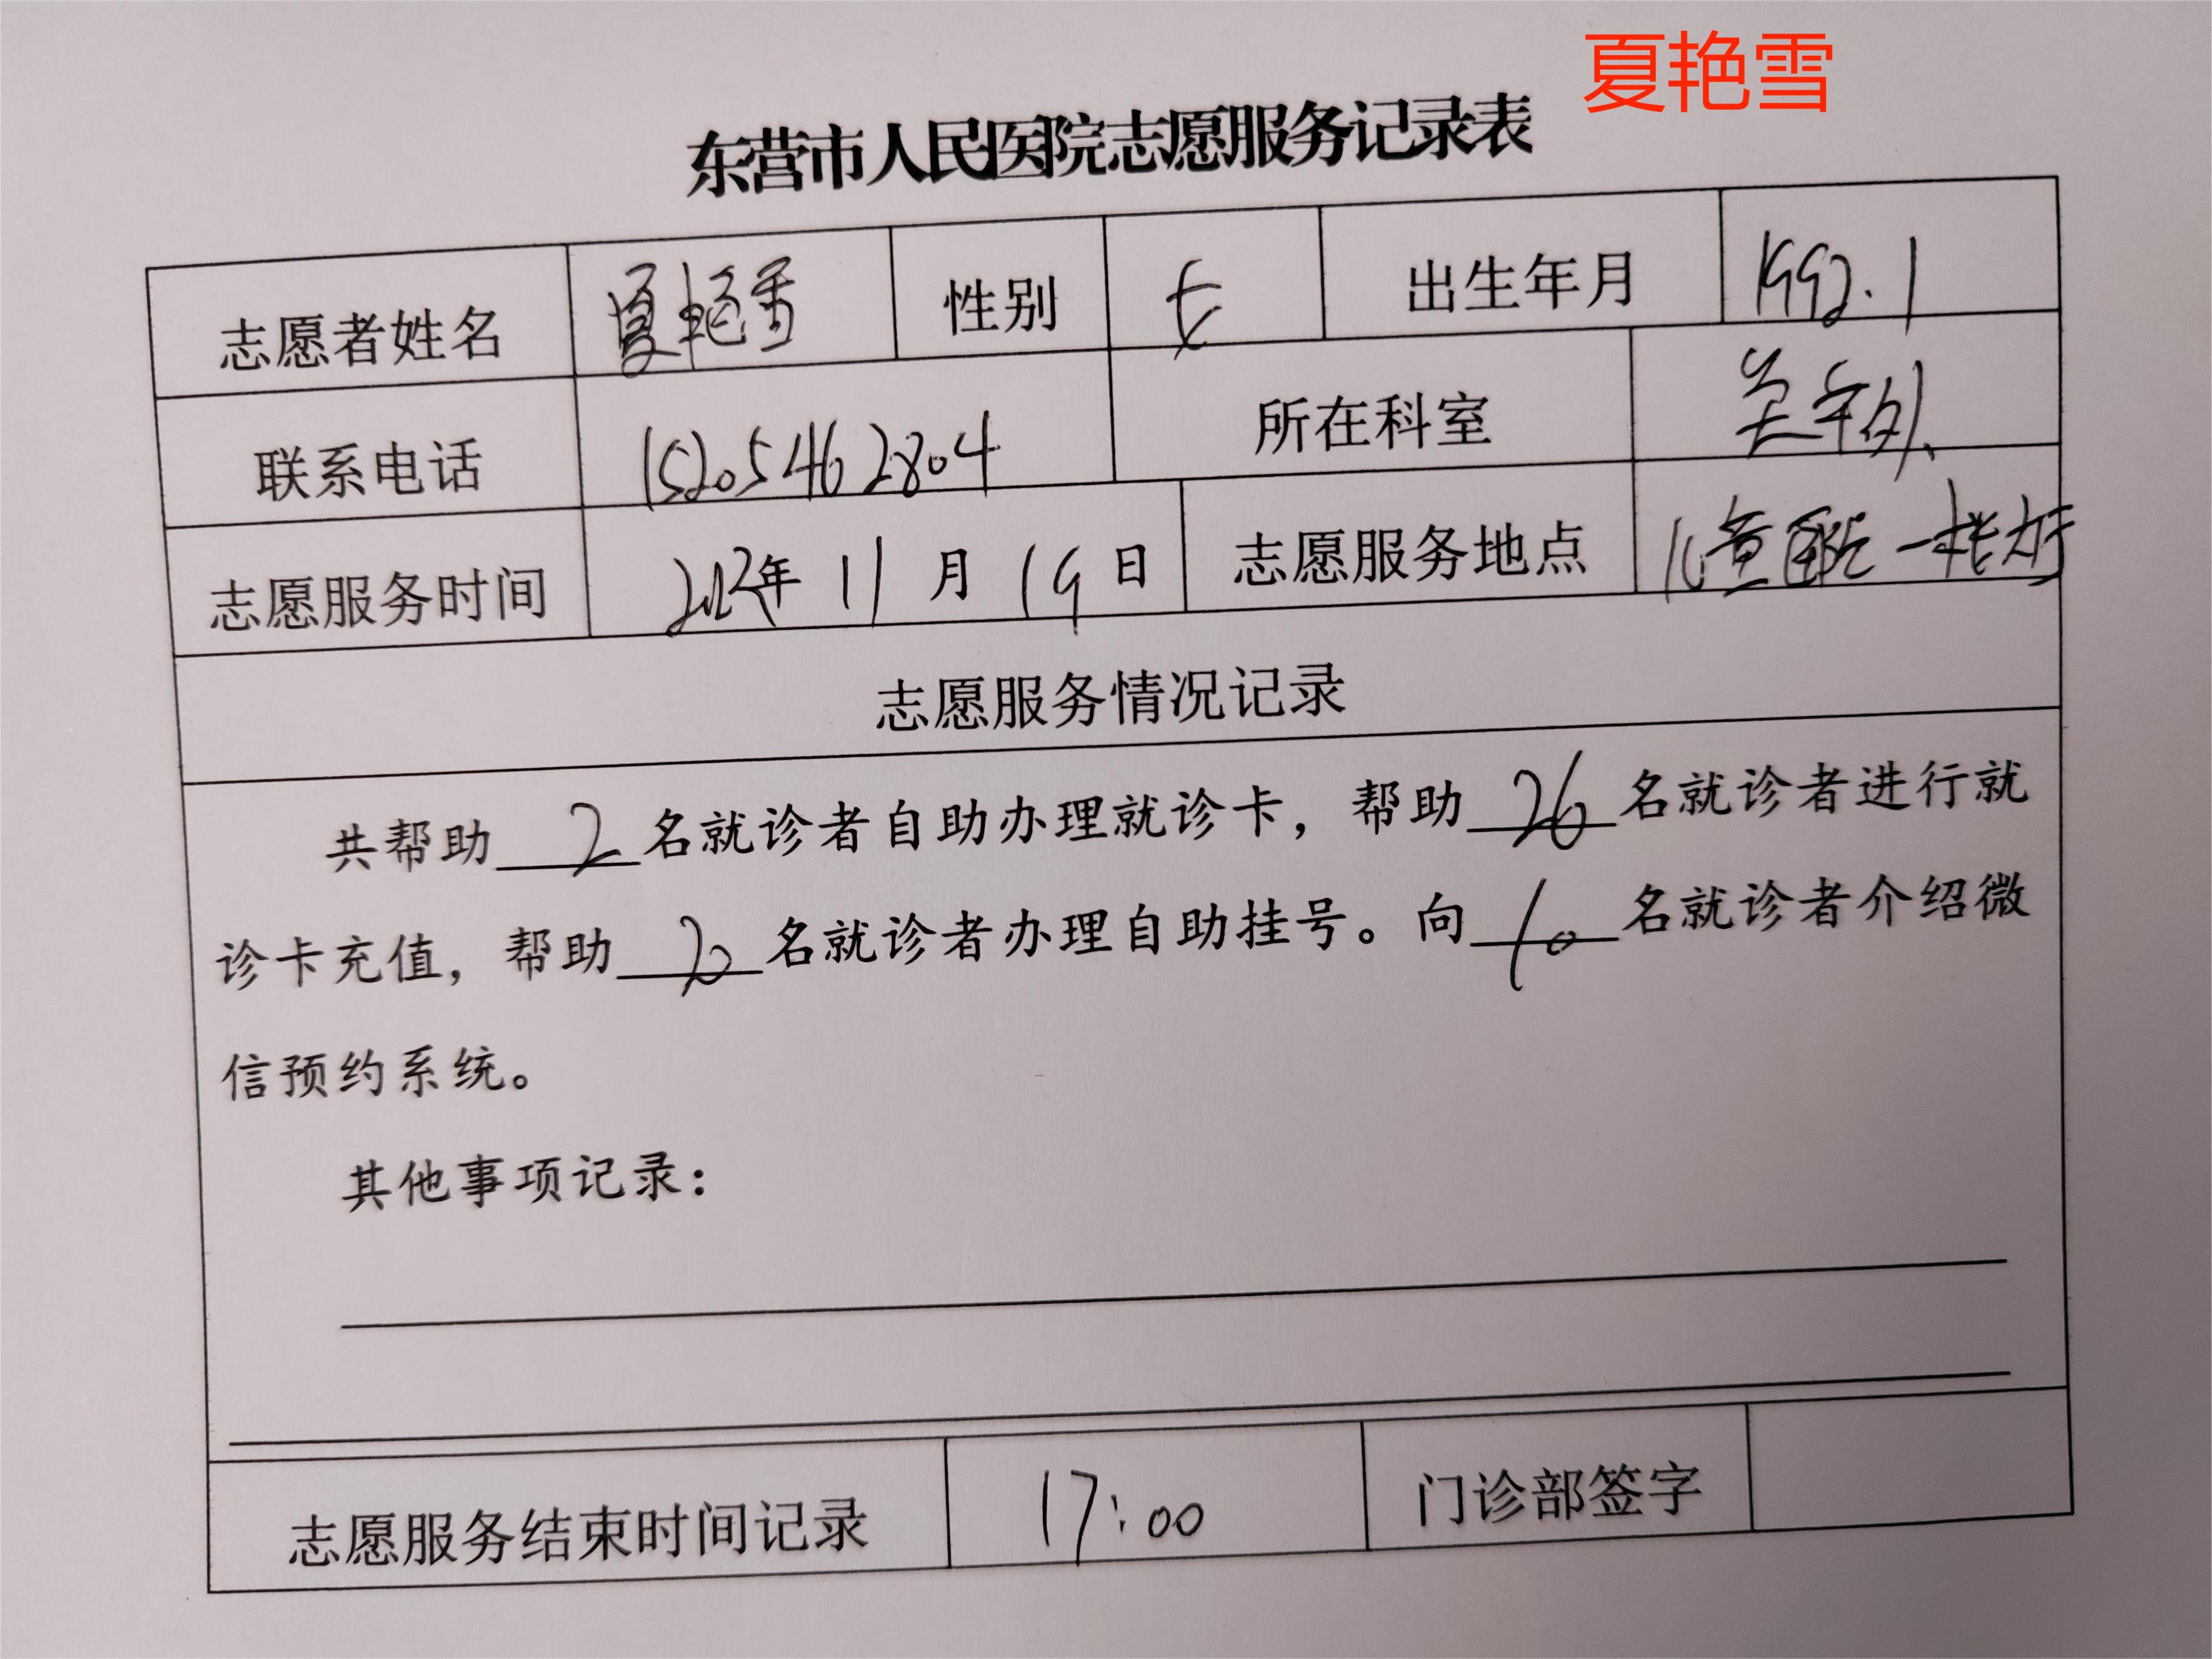 夏艳雪
东营市人民医院志愿服务记录表
志愿者姓名 夏艳雪 性别 女 出生年月 1992.1
联系电话 15205462804 所在科室 关节外
志愿服务时间 年 11 月 19 日 志愿服务地点 儿童医院一楼大厅
志愿服务情况记录
共帮助 2 名就诊者自助办理就诊卡，帮助 26 名就诊者进行就
诊卡充值，帮助 名就诊者办理自助挂号。向 10 名就诊者介绍微
信预约系统。
其他事项记录：
志愿服务结束时间记录 17:00 门诊部签字